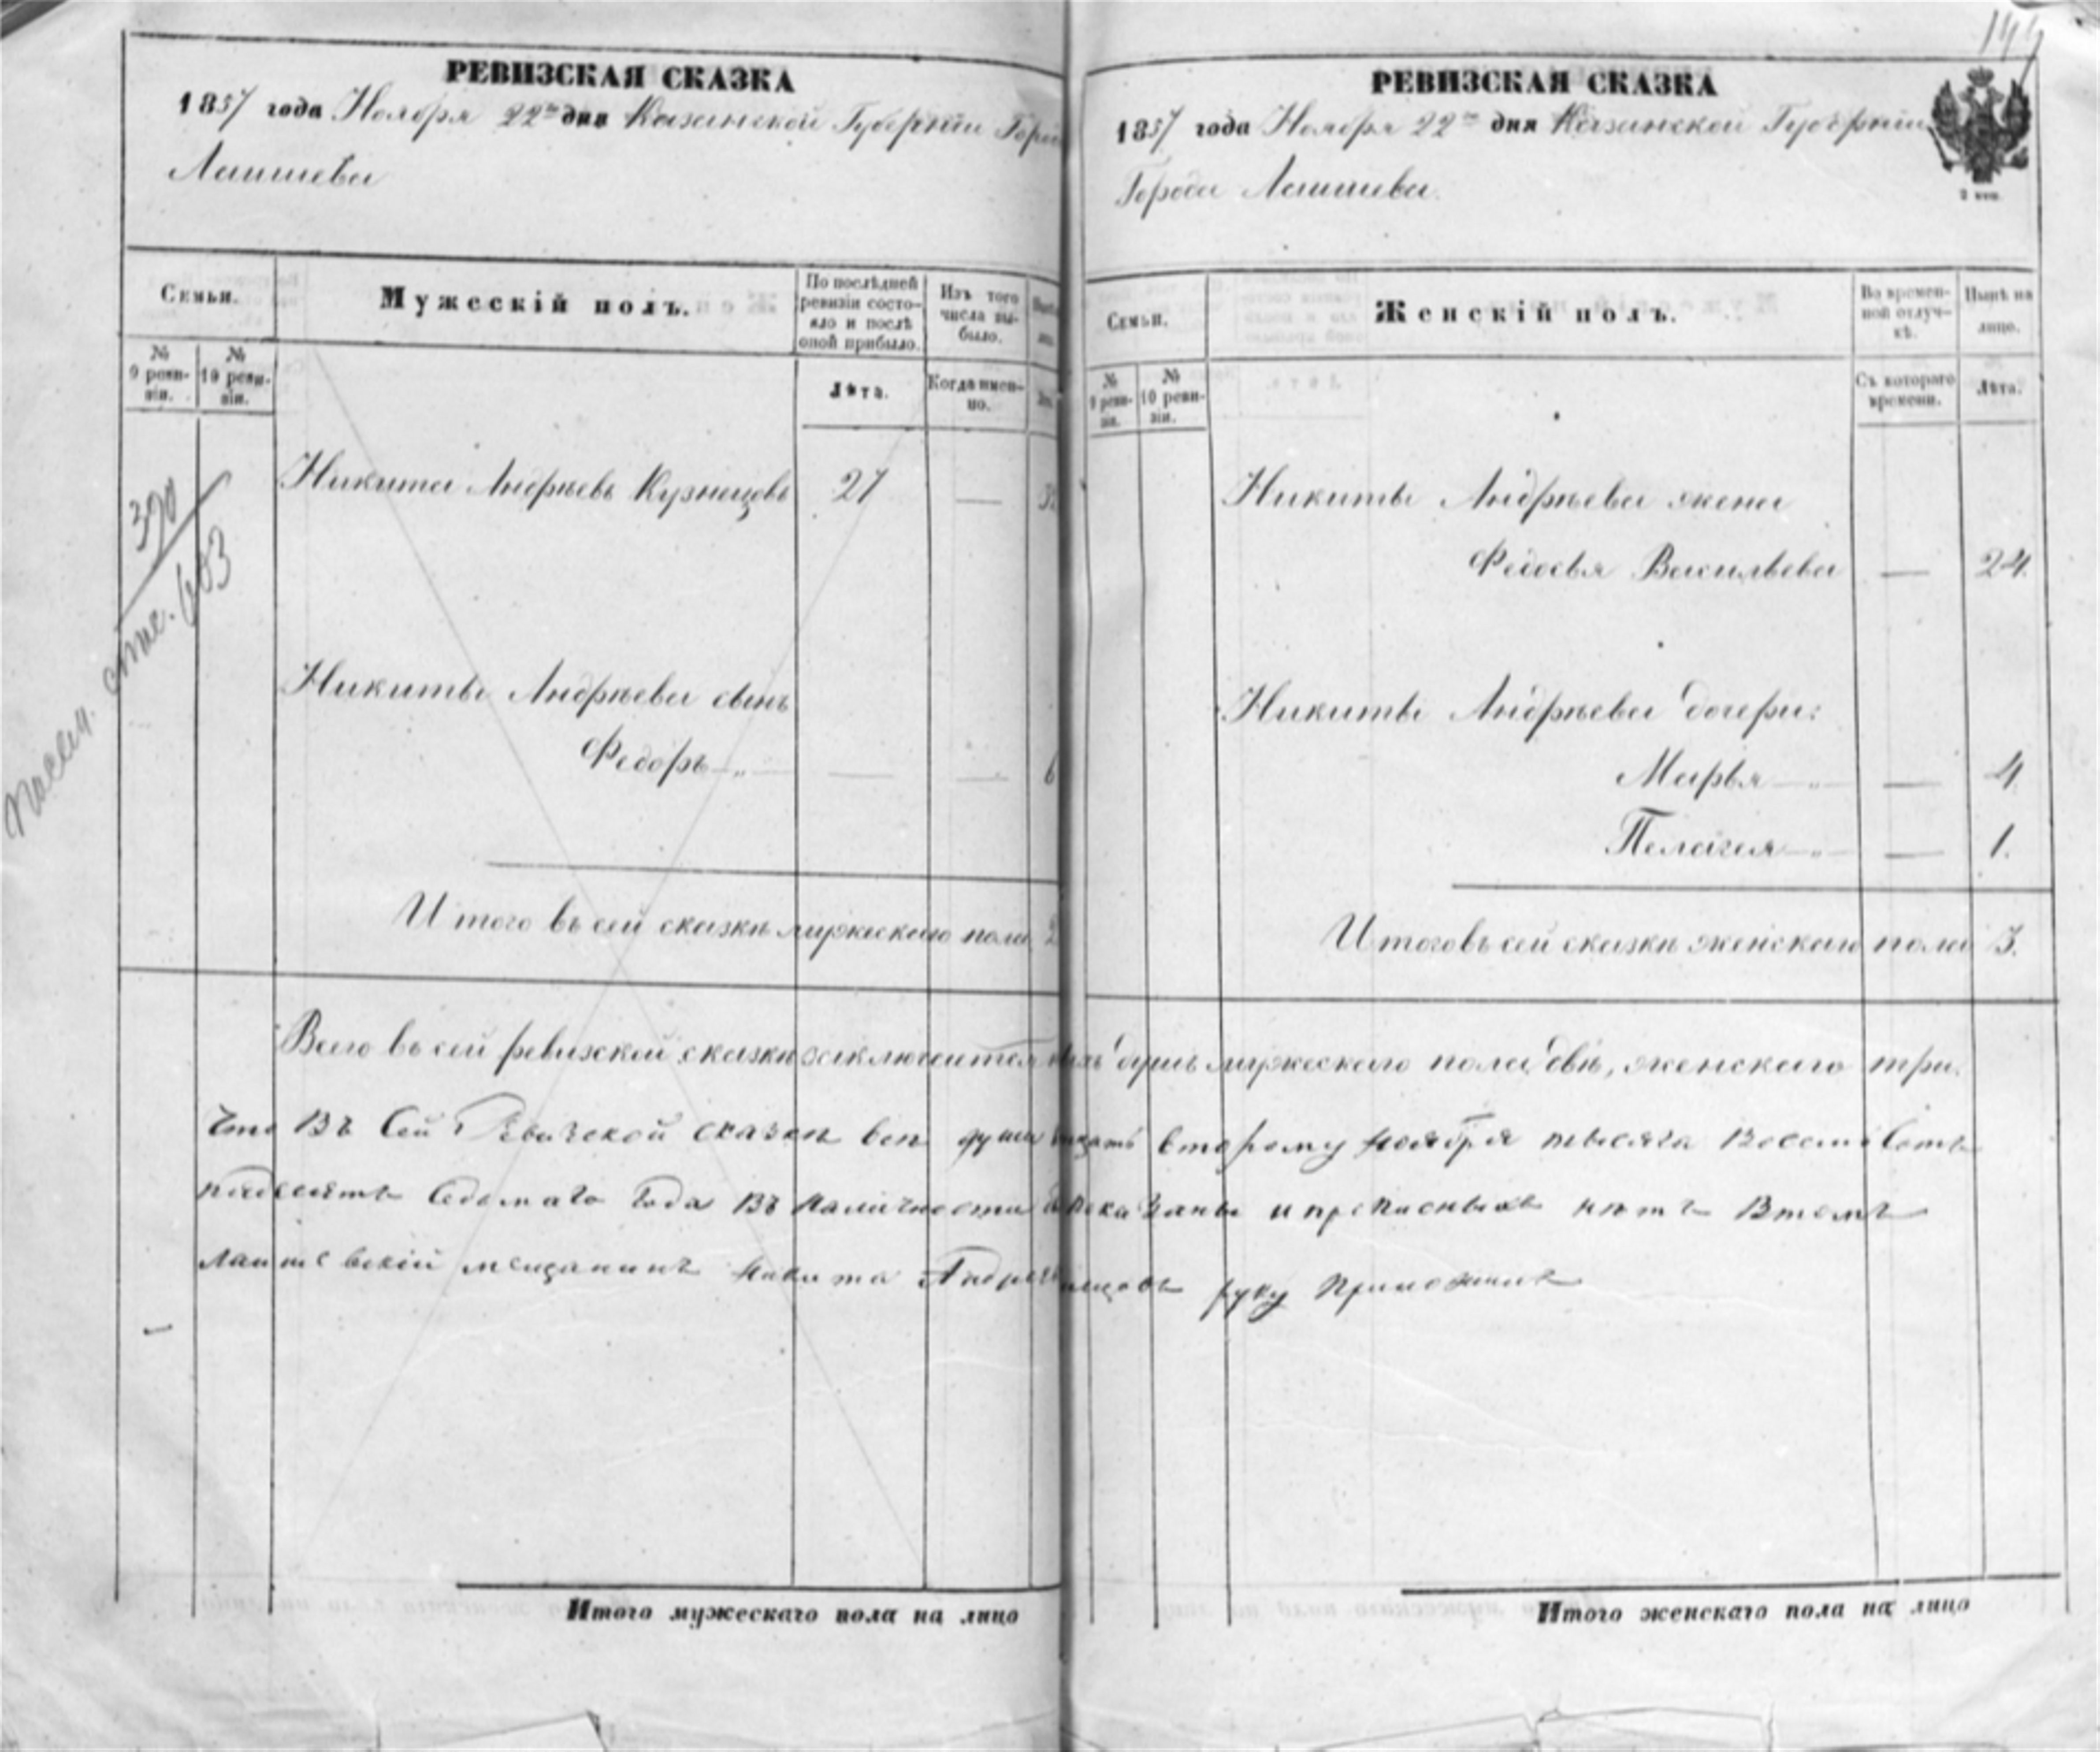 РЕВИЗСКАЯ СКАЗКА
1857 года Ноября 22го дня Казанской Губерніи Горо
Лаишева
Семьи.
Мужескій полъ.
По послѣдней ревизіи состояло и послѣ оной прибыло.
Изъ того числа выбыло.
№ 9 ревизіи.
№ 10 ревизіи.
Лѣта.
Когда именно.
390
403
Никита Андреевъ Кузнецовъ 27 —
Никиты Андреева сынъ
Федоръ — „ — — — 6
Итого въ сей сказкѣ мужескаго пола 2
РЕВИЗСКАЯ СКАЗКА
1857 года Ноября 22го дня Казанской Губерніи
Города Лаишева.
Семьи.
Женскій полъ.
Во временной отлучкѣ.
Нынѣ на лицо.
№ 9 ревизіи.
№ 10 ревизіи.
Съ котораго времени.
Лѣта.
Никиты Андреева жена
Федосья Васильева — 24.
Никиты Андреева дочери:
Марья — „ — — 4
Пелагея — „ — — 1.
Итого въ сей сказкѣ женскаго пола 3.
Всего въ сей ревизской сказкѣ заключается душъ мужескаго пола двѣ, женскаго три.
Что Въ Сей Ревизской сказкѣ всѣ души второму ноября тысяча Восемьсотъ
пядесятъ Седьмаго Года Въ наличности показаны и прописныхъ нѣтъ Втомъ
лаишевскій мещанинъ Никита руку приложилъ
Итого мужескаго пола на лицо
Итого женскаго пола на лицо